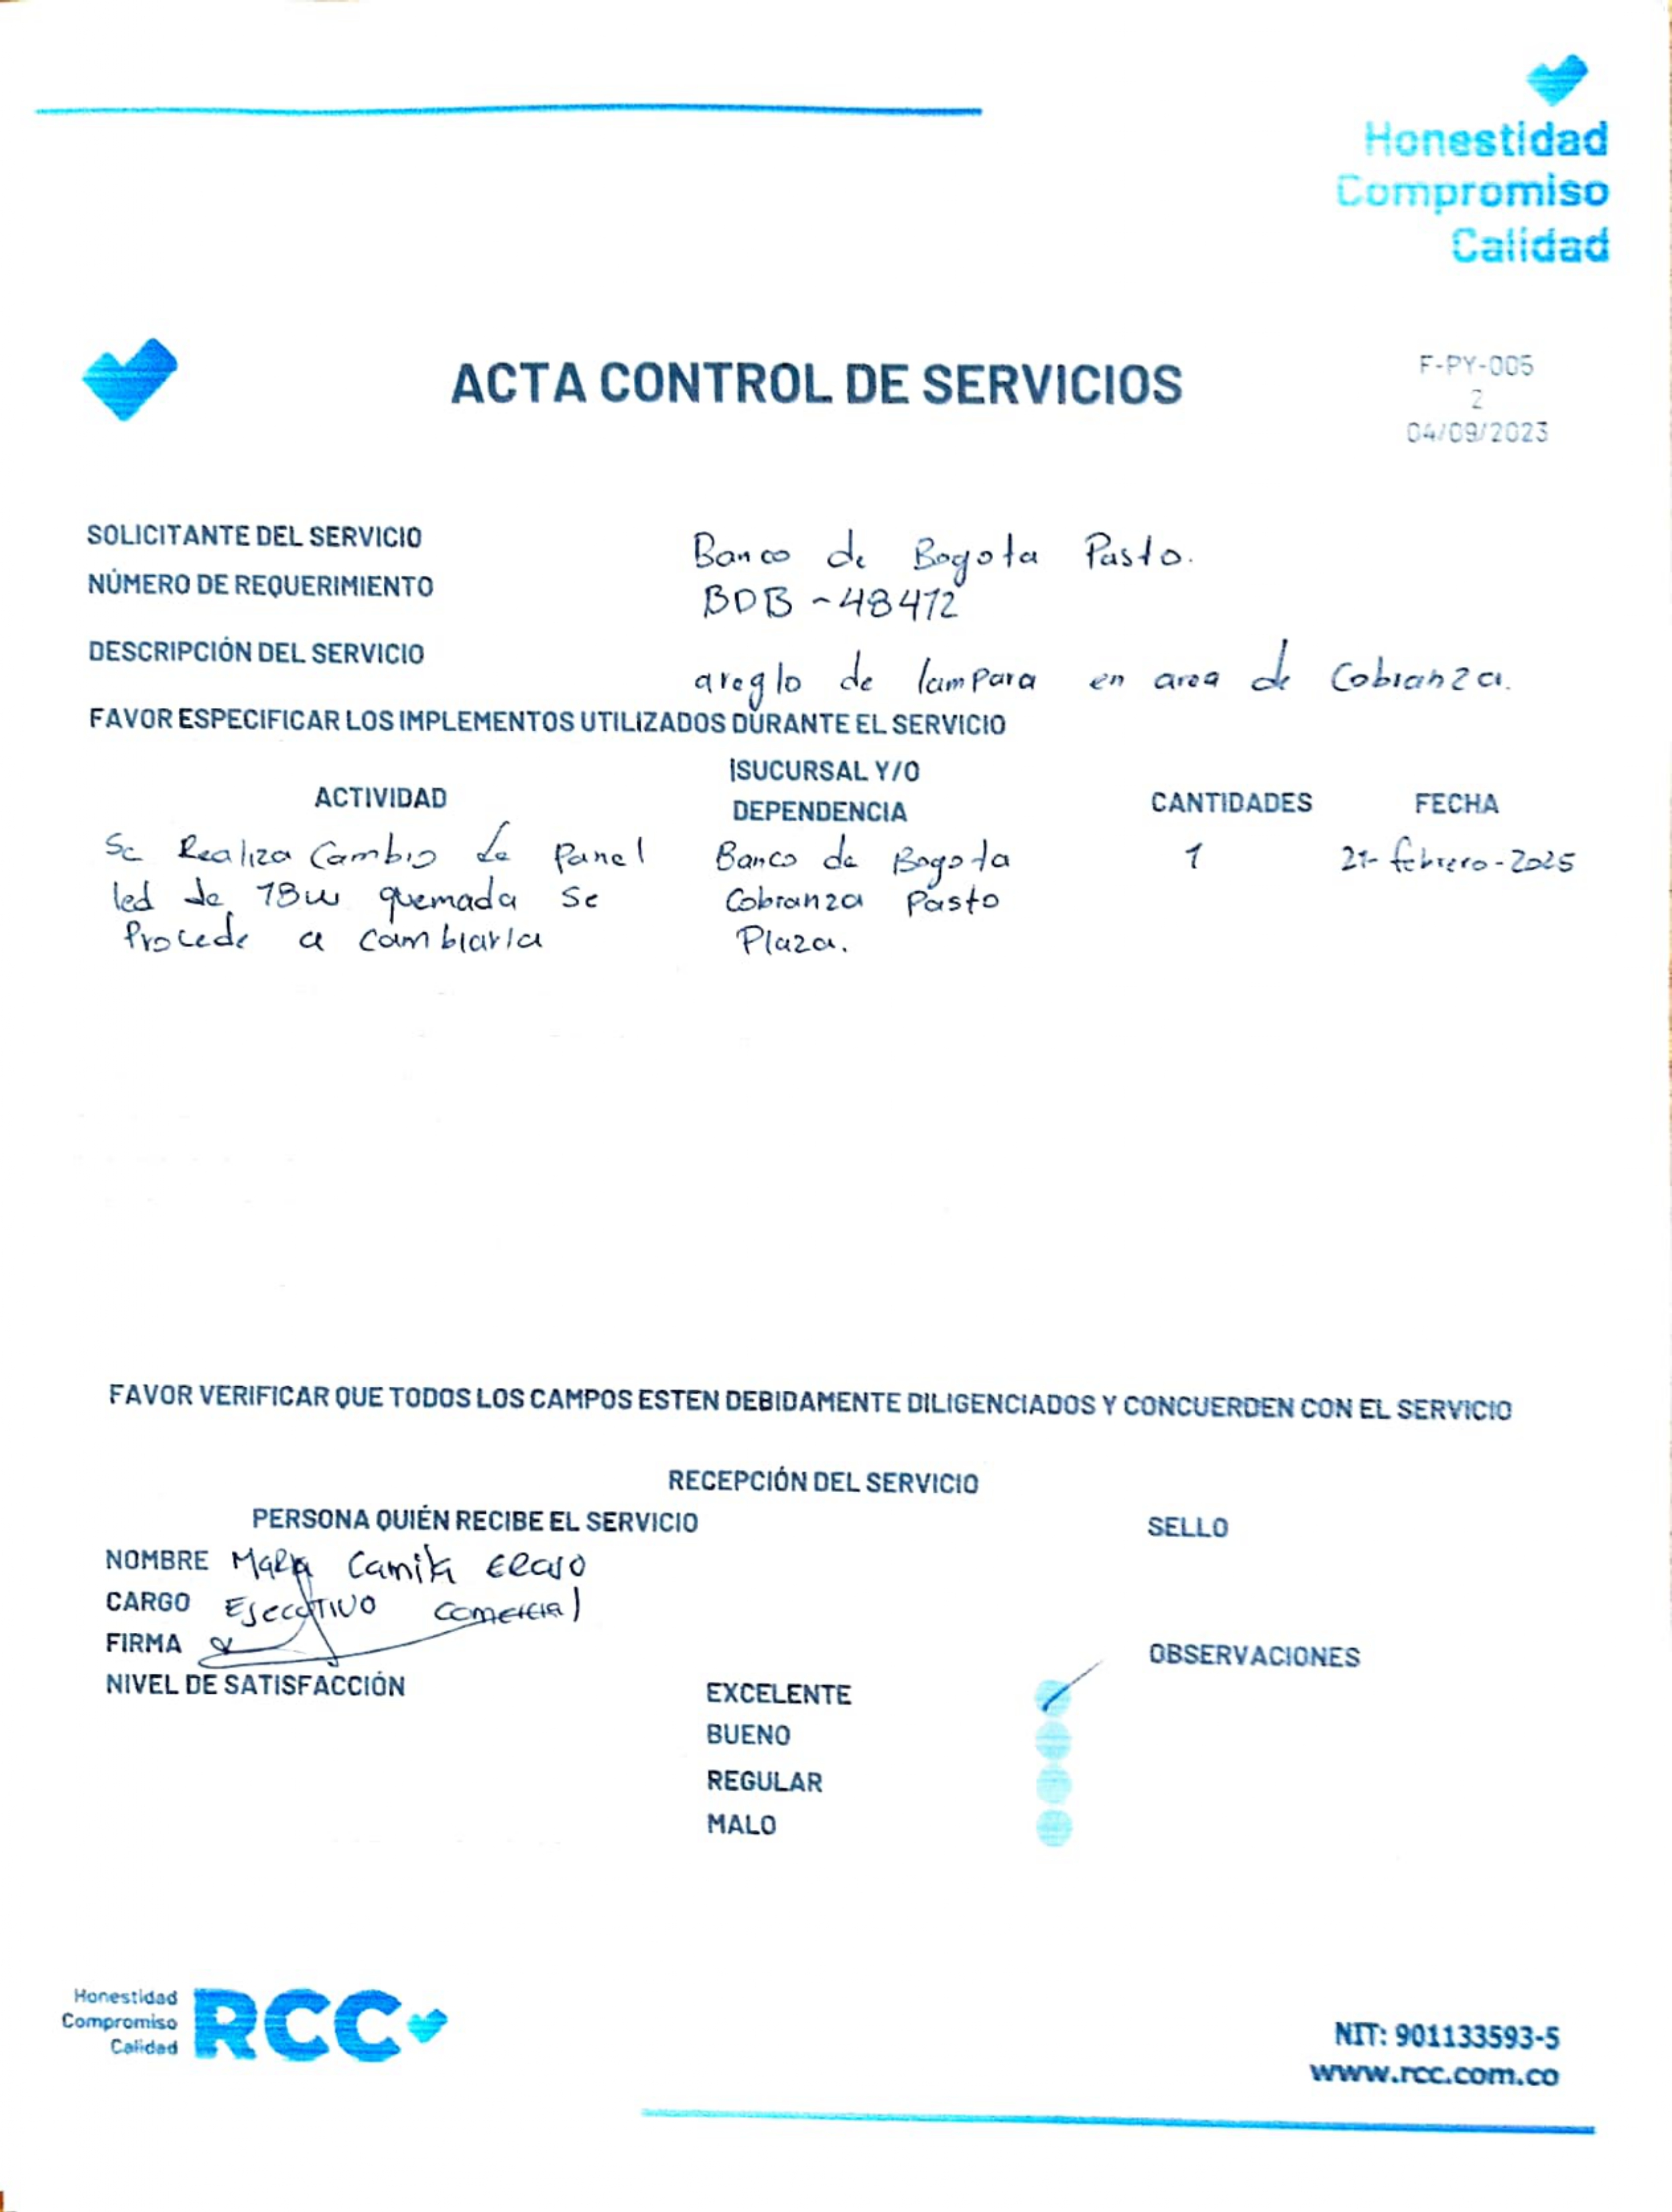 Honestidad
Compromiso
Calidad
ACTA CONTROL DE SERVICIOS
F-PY-005
2
04/09/2023
SOLICITANTE DEL SERVICIO Banco de Bogota Pasto.
NÚMERO DE REQUERIMIENTO BDB-48472
DESCRIPCIÓN DEL SERVICIO areglo de lampara en area de Cobranza.
FAVOR ESPECIFICAR LOS IMPLEMENTOS UTILIZADOS DURANTE EL SERVICIO
ACTIVIDAD ISUCURSAL Y/O DEPENDENCIA CANTIDADES FECHA
Se Realiza Cambio de Panel Banco de Bogota 1 21-febrero-2025
led de 18w quemada Se Cobranza Pasto
Procede a cambiarla Plaza.
FAVOR VERIFICAR QUE TODOS LOS CAMPOS ESTEN DEBIDAMENTE DILIGENCIADOS Y CONCUERDEN CON EL SERVICIO
RECEPCIÓN DEL SERVICIO
PERSONA QUIÉN RECIBE EL SERVICIO SELLO
NOMBRE Maria Camila Eraso
CARGO Ejecutivo comercial
FIRMA
OBSERVACIONES
NIVEL DE SATISFACCIÓN EXCELENTE
BUENO
REGULAR
MALO
Honestidad
Compromiso
Calidad
RCC
NIT: 901133593-5
www.rcc.com.co